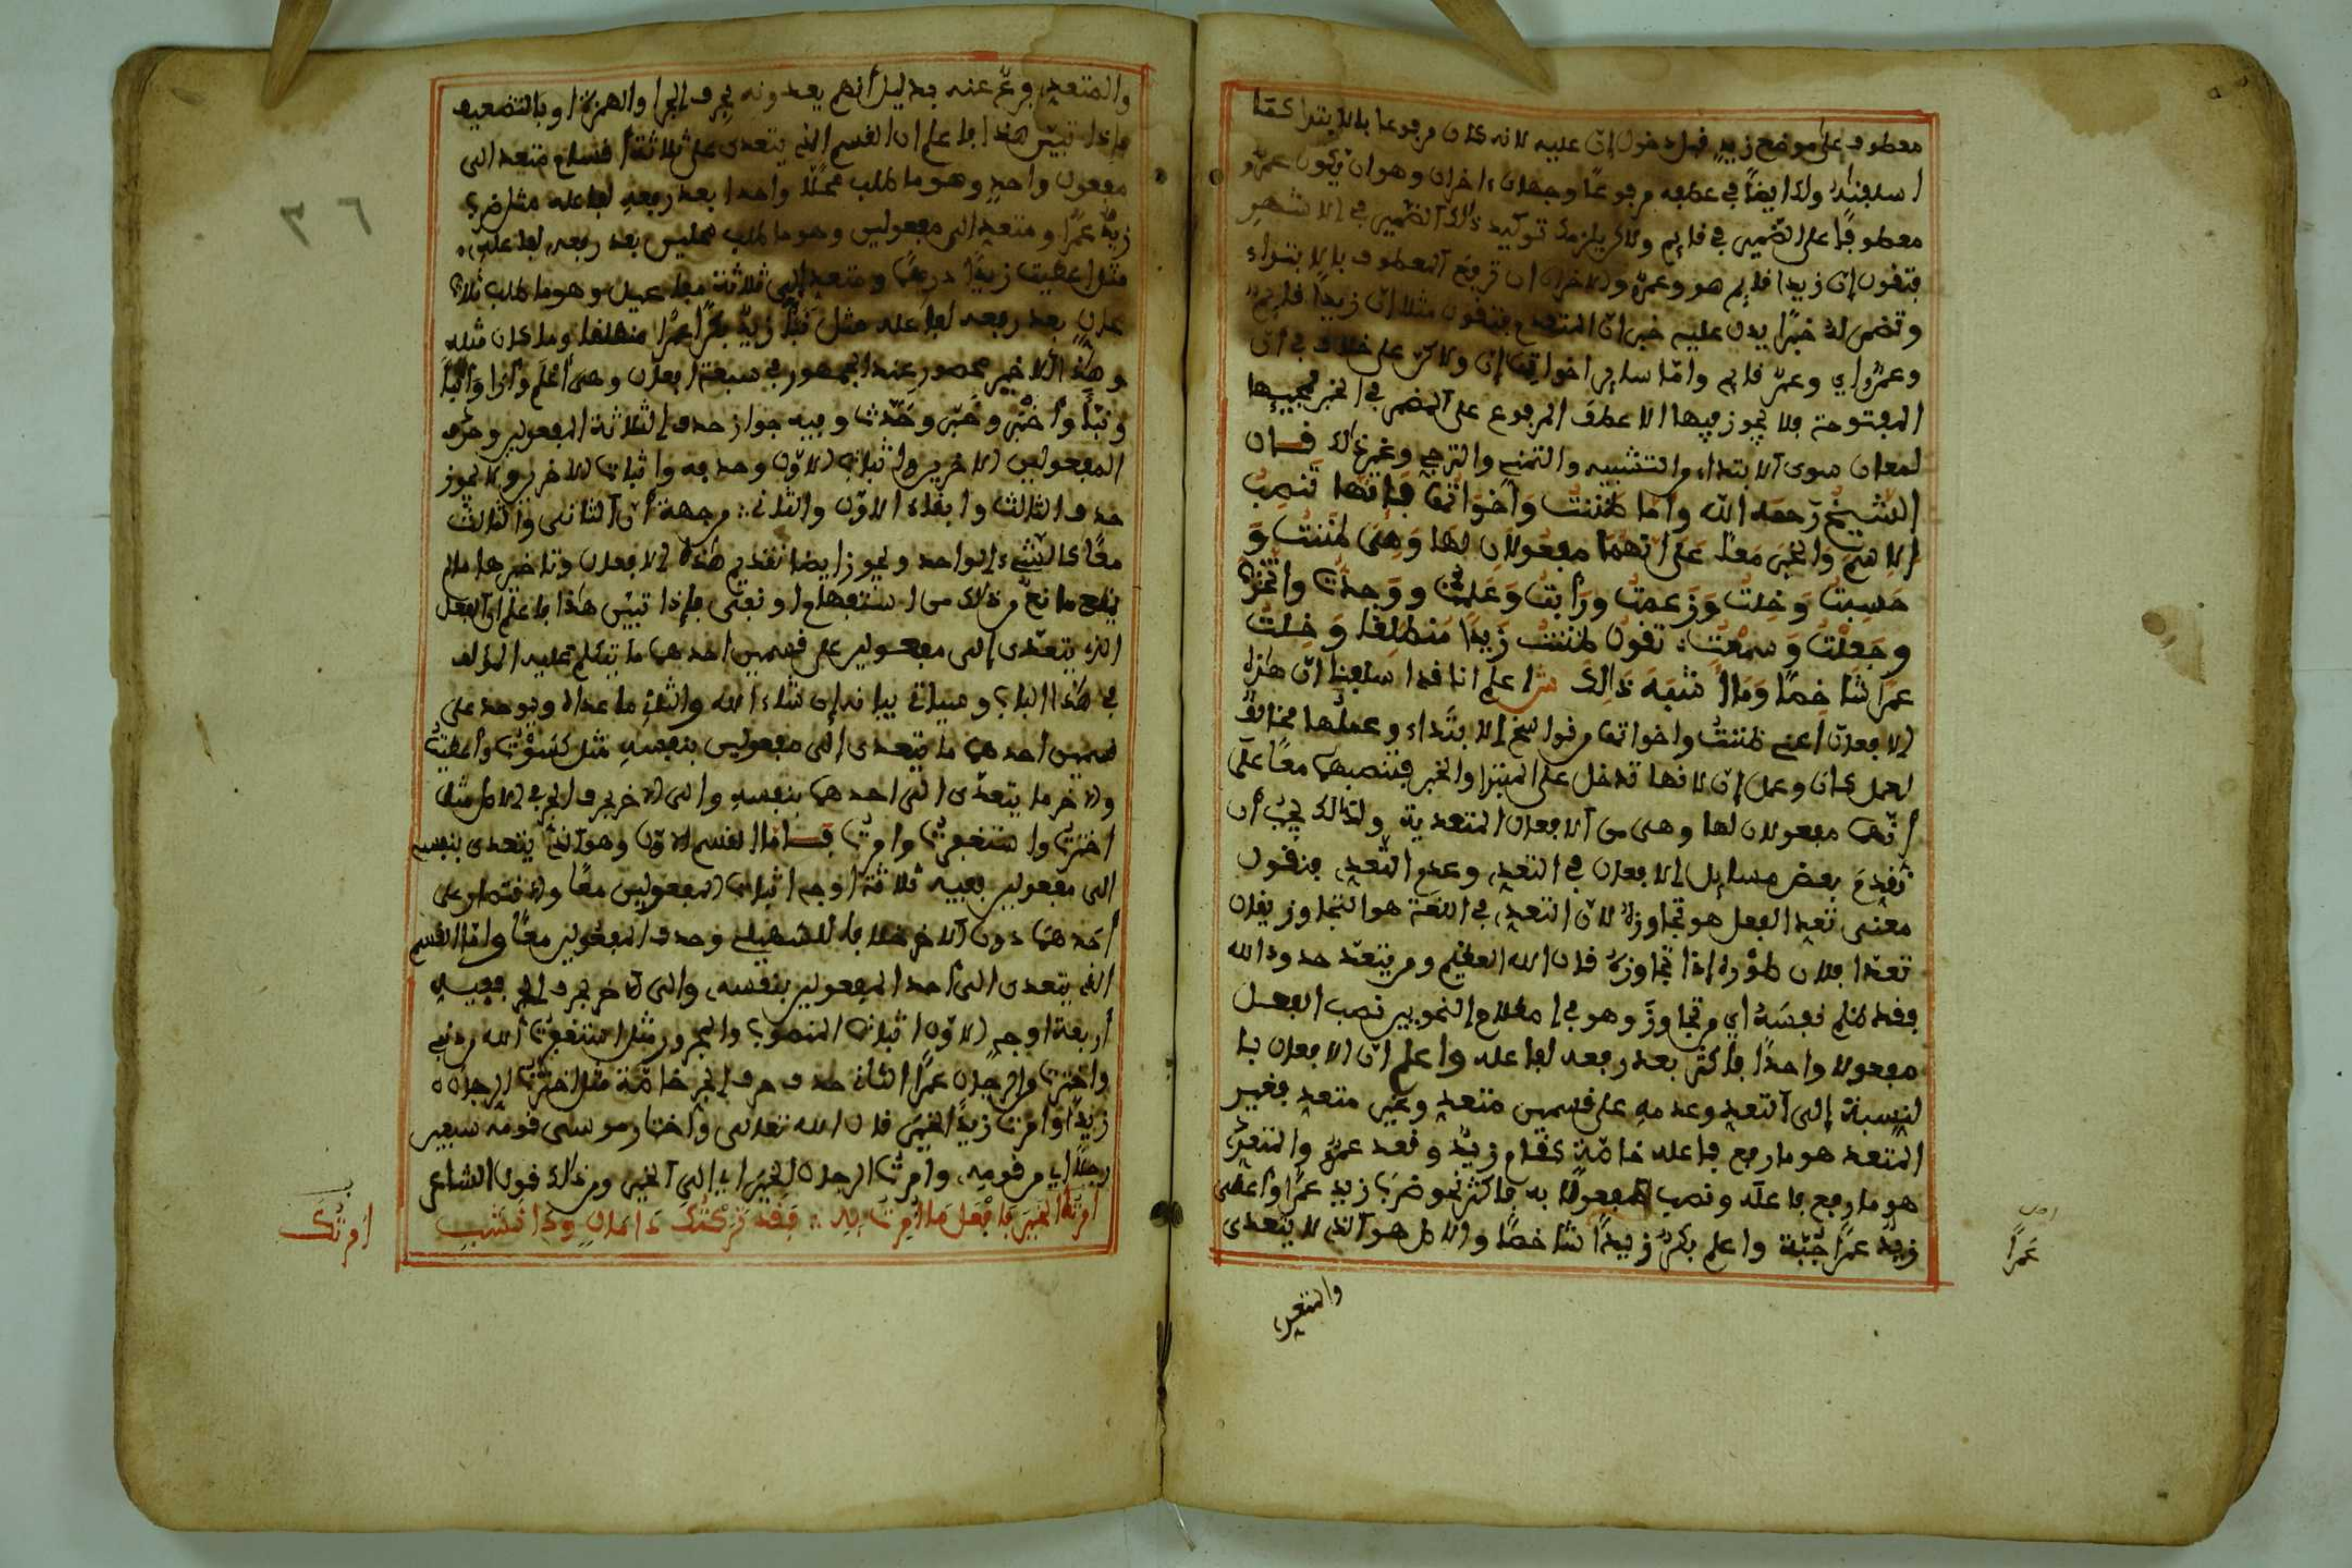 معطوف على موضع زيد قبل دخول إن عليه لانه كان مرفوعا بالابتدا كما
اسلفنا ولك ايضاً في عطفه مرفوعًا وجهان اخران وهو ان يكون عمرو
معطوفًا على الضمير في قايم ولاكن يلزمك توكيد ذلك الضمير في الاشهر
فتقول إن زيدا قايم هو وعمرو والاخر ان ترفع المعطوف بالابتداء
وتضمر له خبرًا يدل عليه خبر ان المتقدم فتقول مثلا ان زيدًا قايم
وعمرو اي وعمرو قايم واما ساير اخوات إن ولاكن على خلاف في ان
المفتوحة فلا يجوز فيها الا عطف المرفوع على المضمر في الخبر لمجيئها
لمعان سوى الابتداء والتشبيه والتمني والترجي وغير ذلك قال
الشيخ رحمه الله واما ظننت وأخواتها فإنها تنصب
الاسم والخبر معا على انهما مفعولان لها وهي ظننت و
حسبت وخلت وزعمت ورأيت وعلمت ووجدت واتخذت
وجعلت وسمعت: تقول ظننت زيدا منطلقا وخلت
عمرا شاخصًا وما اشبه ذالك ش اعلم انا قدا سلفنا ان هذه
الافعال اعني ظننت واخواتها من نواسخ الابتداء وعملها مخالف
لعمل كان وعمل إن لانها تدخل على المبتدا والخبر فتنصبهما معًا على
أنهما مفعولان لها وهي من الافعال المتعدية ولذالك يجب أن
نقدم بعض مسايل الافعال في التعدي وعدم التعدي فنقول
معنى تعدي الفعل هو تجاوزه لان التعدي في اللغة هو التجاوز يقال
تعدا فلان طوره اذا تجاوزه قال الله العظيم ومن يتعد حدود الله
فقد ظلم نفسه أي من تجاوز وهو في اصطلاح النحويين نصب الفعل
مفعولا واحدًا فاكثر بعد رفعه لفاعله واعلم ان الافعال با
لنسبة إلى التعدي وعدمه على قسمين متعدٍ وغير متعدٍ فغير
المتعد هو ما رفع فاعله خاصة كقام زيد وقعد عمرو والمتعدي
هو ما رفع فاعله ونصب المفعول به فاكثر نحو ضرب زيد عمرًا وأعطى
زيد عمرًا جُبّة واعلم بكر زيدًا شاخصًا والاصل هو الذي لا يتعدى
عمرًا
والمتعدي
والمتعدي فرع عنه بدليل أنهم يعدونه بحرف الجر والهمزة او بالتضعيف
فإذا تبين هذا فاعلم ان القسم الذي يتعدى على ثلاثة أقسام متعد الى
مفعول واحد وهو ما طلب محلا واحدا بعد رفعه لفاعله مثل ضرب
زيد عمرًا ومتعد الى مفعولين وهو ما طلب محلين بعد رفعه لفاعله
مثل اعطيت زيدًا درهمًا ومتعد إلى ثلاثة مفاعيل وهو ما طلب ثلاث
محال بعد رفعه لفاعله مثل نبأ زيد بكرًا عمرًا منطلقا وما كان مثله
وهذا الاخير محصور عند الجمهور في سبعة افعال وهي أعلم وأرا وأنبأ
ونبّأ وأخبر وخبّر وحدث وفيه جواز حذف الثلاثة المفعولين وحذف
المفعولين الاخرين واثبات الاول وحذفه واثبات الاخرين ولا يجوز
حذف الثالث وابقاء الاول والثاني من جهة أن الثاني والثالث
معًا كالشيء الواحد ويجوز ايضا تقديم هذه الافعال وتاخيرها ما لم
يقع مانع من ذلك من استفهام او نفي فإذا تبين هذا فاعلم ان الفعل
الذي يتعدى إلى مفعولين على قسمين احدهما ما يتكلم عليه المؤلف
في هذا الباب وسياتي بيانه إن شاء الله والثاني ما عداه ويوجد على
قسمين احدهما ما يتعدى الى مفعولين بنفسه مثل كسوت وأعطيت
والاخر ما يتعدى الى احدهما بنفسه والى الاخر بحرف الجر في الاصل مثل
اخترت واستغفرت وامرت فاما القسم الاول وهو الذي يتعدى بنفسه
الى مفعولين ففيه ثلاثة اوجه اثبات المفعولين معًا والاقتصار على
أحدهما دون الاخر خلافا للسهيلي وحذف المفعولين معًا واما القسم
الذي يتعدى الى أحد المفعولين بنفسه والى الاخر بحرف الجر ففيه
أربعة اوجه الاول اثبات المنصوب والمجرور مثل استغفرت الله من ذنبي
واخترت من الرجال عمرًا الثاني حذف حرف الجر خاصة مثل اخترت الرجال
زيدًا وامرت زيدًا الخير قال الله تعالى وأختار موسى قومه سبعين
رجلا اي من قومه وامرت الرجل الخير اي الى الخير ومن ذالك قول الشاعر
امرتك الخير فافعل ما أمرت به :: فقد تركتك ذا مال وذا نشب
أمرتك
٣٦